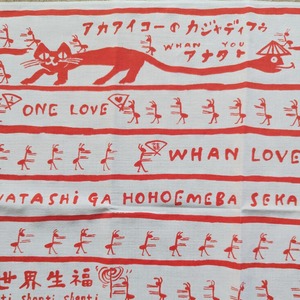 アカアイコーのカジャディフゥ
WHAN YOU
アナタト
ONE LOVE
WHAN LOVE
WATASHI GA HOHOEMEBA SEKA
世界生福
ti shanti shanti